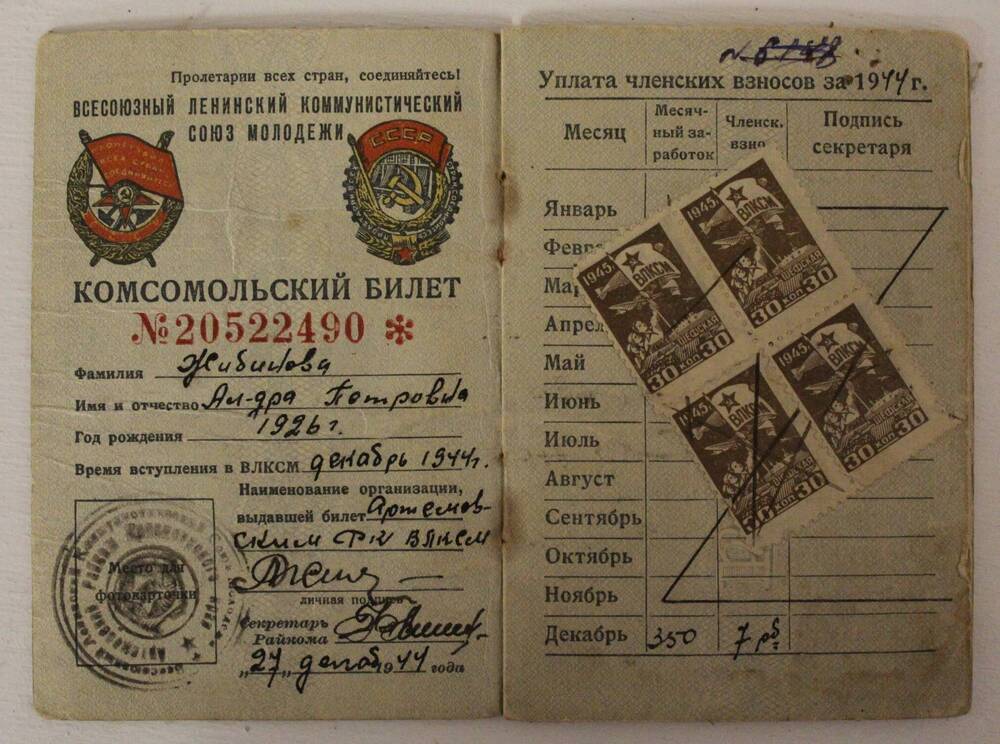 Пролетарии всех стран, соединяйтесь!
ВСЕСОЮЗНЫЙ ЛЕНИНСКИЙ КОММУНИСТИЧЕСКИЙ
СОЮЗ МОЛОДЕЖИ
СССР
КОМСОМОЛЬСКИЙ БИЛЕТ
№20522490 *
Фамилия
Имя и отчество Ал-дра Петровна
Год рождения 1926 г.
Время вступления в ВЛКСМ декабрь 1944 г.
Наименование организации,
выдавшей билет Артемов-
ским РК ВЛКСМ
Место для
фотокарточки
личная подпись
Секретарь
Райкома
"27" декаб 1944 года
Уплата членских взносов за 1944 г.
Месяц
Месяч-
ный за-
работок
Членск.
Подпись
секретаря
Январь
Апрел
Май
Июнь
Июль
Август
Сентябрь
Октябрь
Ноябрь
Декабрь 350 7 рб
1945 ВЛКСМ
30 коп 30
1945 ВЛКСМ
30 коп 30
1945 ВЛКСМ
30 коп 30
1945 ВЛКСМ
30 коп 30